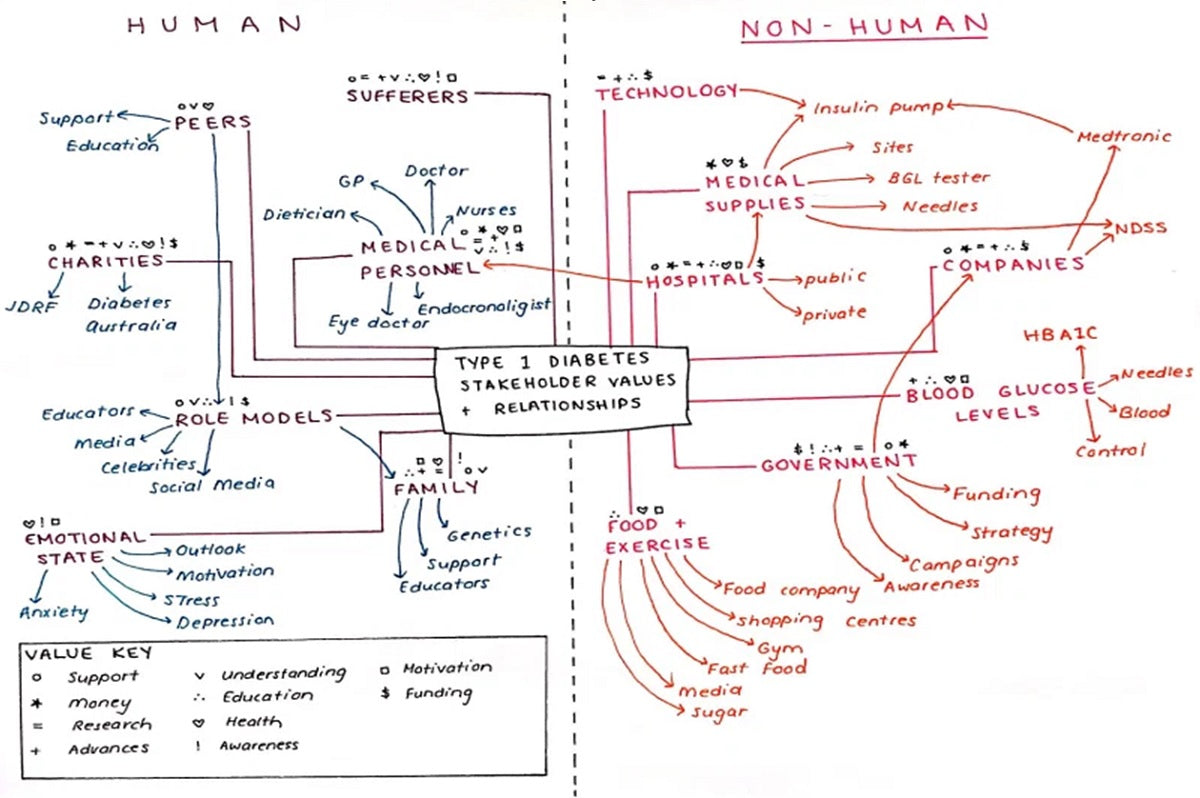 HUMAN
NON-HUMAN
o = + v ∴ ♡ ! □
SUFFERERS
o v ♡
PEERS
Support
Education
GP
Doctor
Dietician
Nurses
o * ♡ □
= +
v ∴ ! $
MEDICAL
PERSONNEL
Eye doctor
Endocronoligist
o * = + v ∴ ♡ ! $
CHARITIES
JDRF
Diabetes
Australia
TYPE 1 DIABETES
STAKEHOLDER VALUES
+ RELATIONSHIPS
o v ∴ ! $
ROLE MODELS
Educators
Media
Celebrities
Social Media
□ ♡ !
∴ + = o v
FAMILY
Genetics
Support
Educators
♡ ! □
EMOTIONAL
STATE
Outlook
Motivation
STress
Depression
Anxiety
= + ∴ $
TECHNOLOGY
Insulin pump
Medtronic
* ♡ $
MEDICAL
SUPPLIES
Sites
BGL tester
Needles
NDSS
o * = + ∴ ♡ □ $
HOSPITALS
public
private
o * = + ∴ $
COMPANIES
HBA1C
+ ∴ ♡ □
BLOOD GLUCOSE
LEVELS
Needles
Blood
Control
$ ! ∴ + = o *
GOVERNMENT
Funding
Strategy
Campaigns
Awareness
∴ ♡ □
FOOD +
EXERCISE
Food company
shopping centres
Gym
Fast food
media
sugar
VALUE KEY
o Support
* Money
= Research
+ Advances
v Understanding
∴ Education
♡ Health
! Awareness
□ Motivation
$ Funding